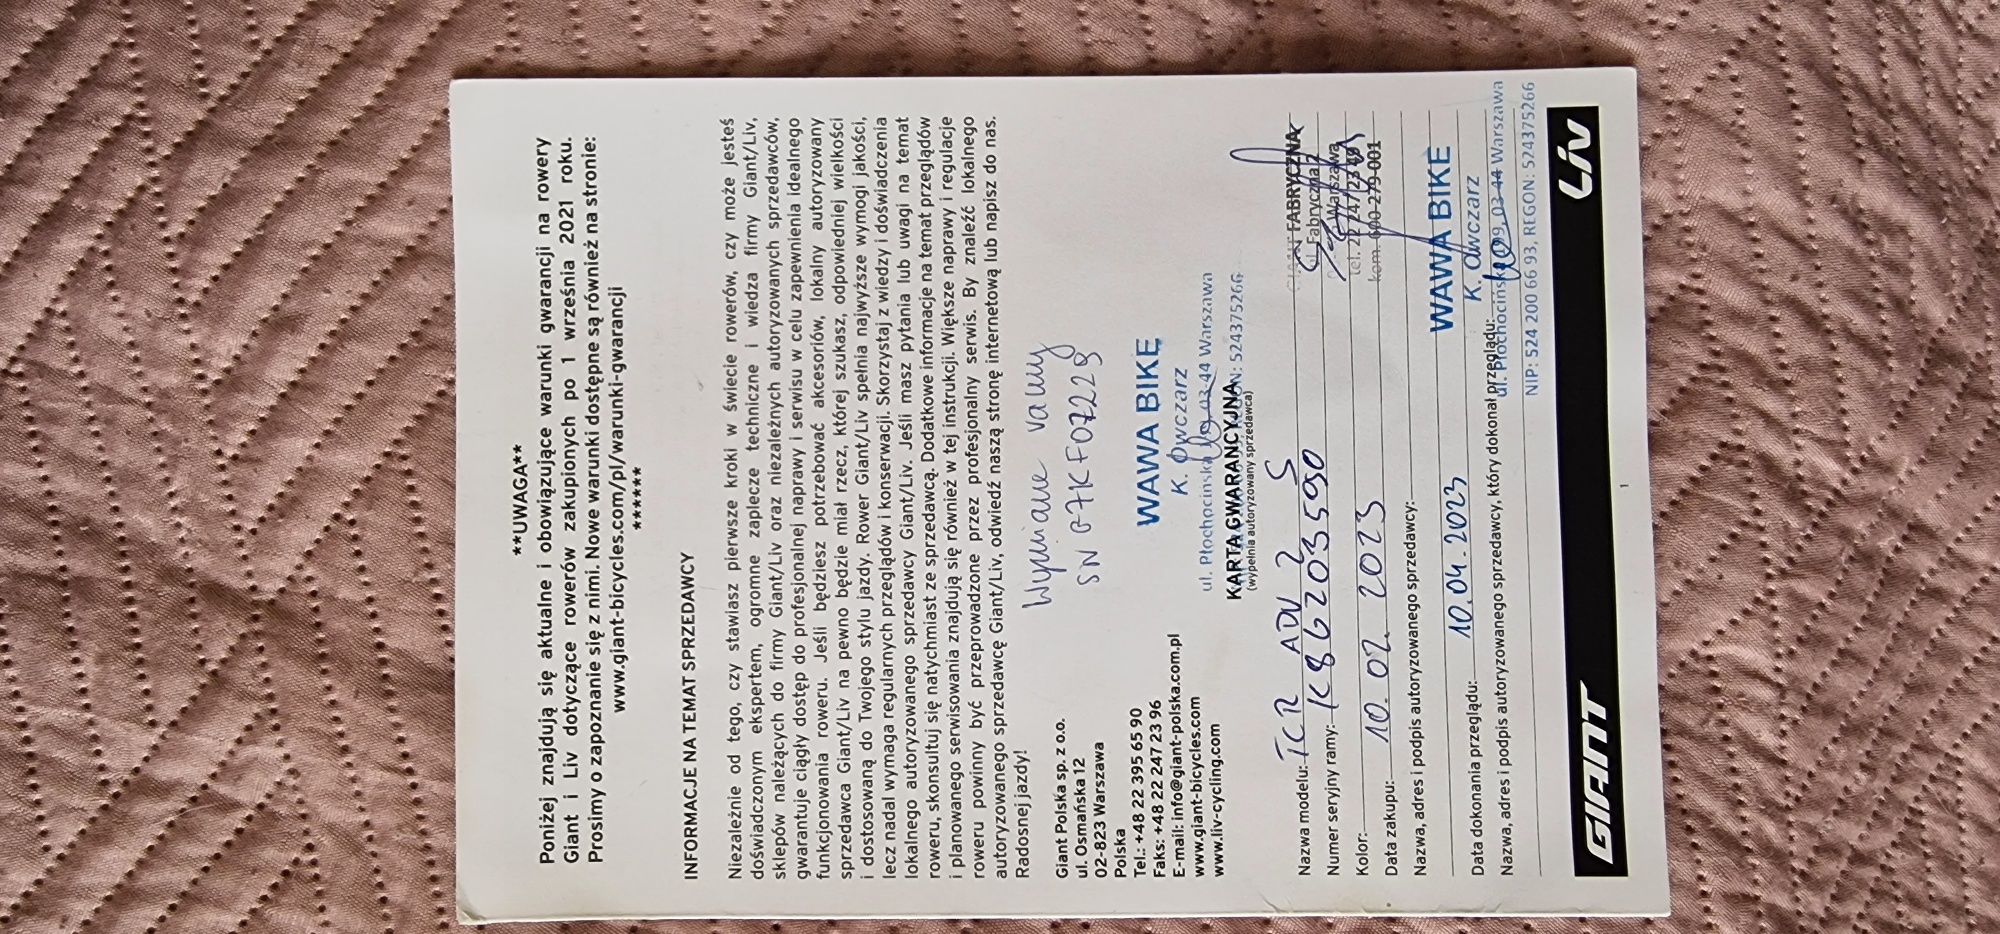 **UWAGA**
Poniżej znajdują się aktualne i obowiązujące warunki gwarancji na rowery
Giant i Liv dotyczące rowerów zakupionych po 1 września 2021 roku.
Prosimy o zapoznanie się z nimi. Nowe warunki dostępne są również na stronie:
www.giant-bicycles.com/pl/warunki-gwarancji
******
INFORMACJE NA TEMAT SPRZEDAWCY
Niezależnie od tego, czy stawiasz pierwsze kroki w świecie rowerów, czy może jesteś
doświadczonym ekspertem, ogromne zaplecze techniczne i wiedza firmy Giant/Liv,
sklepów należących do firmy Giant/Liv oraz niezależnych autoryzowanych sprzedawców,
gwarantuje ciągły dostęp do profesjonalnej naprawy i serwisu w celu zapewnienia idealnego
funkcjonowania roweru. Jeśli będziesz potrzebować akcesoriów, lokalny autoryzowany
sprzedawca Giant/Liv na pewno będzie miał rzecz, której szukasz, odpowiedniej wielkości
i dostosowaną do Twojego stylu jazdy. Rower Giant/Liv spełnia najwyższe wymogi jakości,
lecz nadal wymaga regularnych przeglądów i konserwacji. Skorzystaj z wiedzy i doświadczenia
lokalnego autoryzowanego sprzedawcy Giant/Liv. Jeśli masz pytania lub uwagi na temat
roweru, skonsultuj się natychmiast ze sprzedawcą. Dodatkowe informacje na temat przeglądów
i planowanego serwisowania znajdują się również w tej instrukcji. Większe naprawy i regulacje
roweru powinny być przeprowadzone przez profesjonalny serwis. By znaleźć lokalnego
autoryzowanego sprzedawcę Giant/Liv, odwiedź naszą stronę internetową lub napisz do nas.
Radosnej jazdy!
Wymiana ramy
SN G7KF07229
Giant Polska sp. z o.o.
ul. Osmańska 12
02-823 Warszawa
Polska
Tel.: +48 22 395 65 90
Faks: +48 22 247 23 96
E-mail: info@giant-polska.com.pl
www.giant-bicycles.com
www.liv-cycling.com
WAWA BIKE
K. Owczarz
ul. Płochocińska 99, 03-44 Warszawa
REGON: 524375266
KARTA GWARANCYJNA
(wypełnia autoryzowany sprzedawca)
Nazwa modelu: TCR ADV 2 S
Numer seryjny ramy: K8G2035590
Kolor:
Data zakupu: 10.02.2023
Nazwa, adres i podpis autoryzowanego sprzedawcy:
FABRYCZNA
ul. Fabryczna
Warszawa
tel. 22 247 23 49
kom. 600-279-001
Data dokonania przeglądu: 10.04.2023
Nazwa, adres i podpis autoryzowanego sprzedawcy, który dokonał przeglądu:
WAWA BIKE
K. Owczarz
ul. Płochocińska 99, 03-44 Warszawa
NIP: 524 200 66 93, REGON: 524375266
GIANT
Liv
1